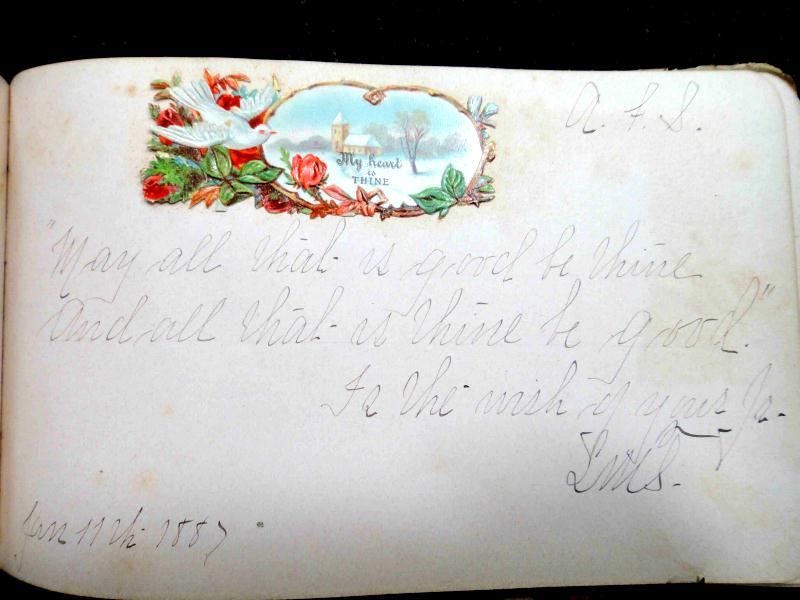 A. F. S.
My heart
is
THINE
"May all that is good be thine
And all that is thine be good."
Is the wish of yours
Jan 11th 1887